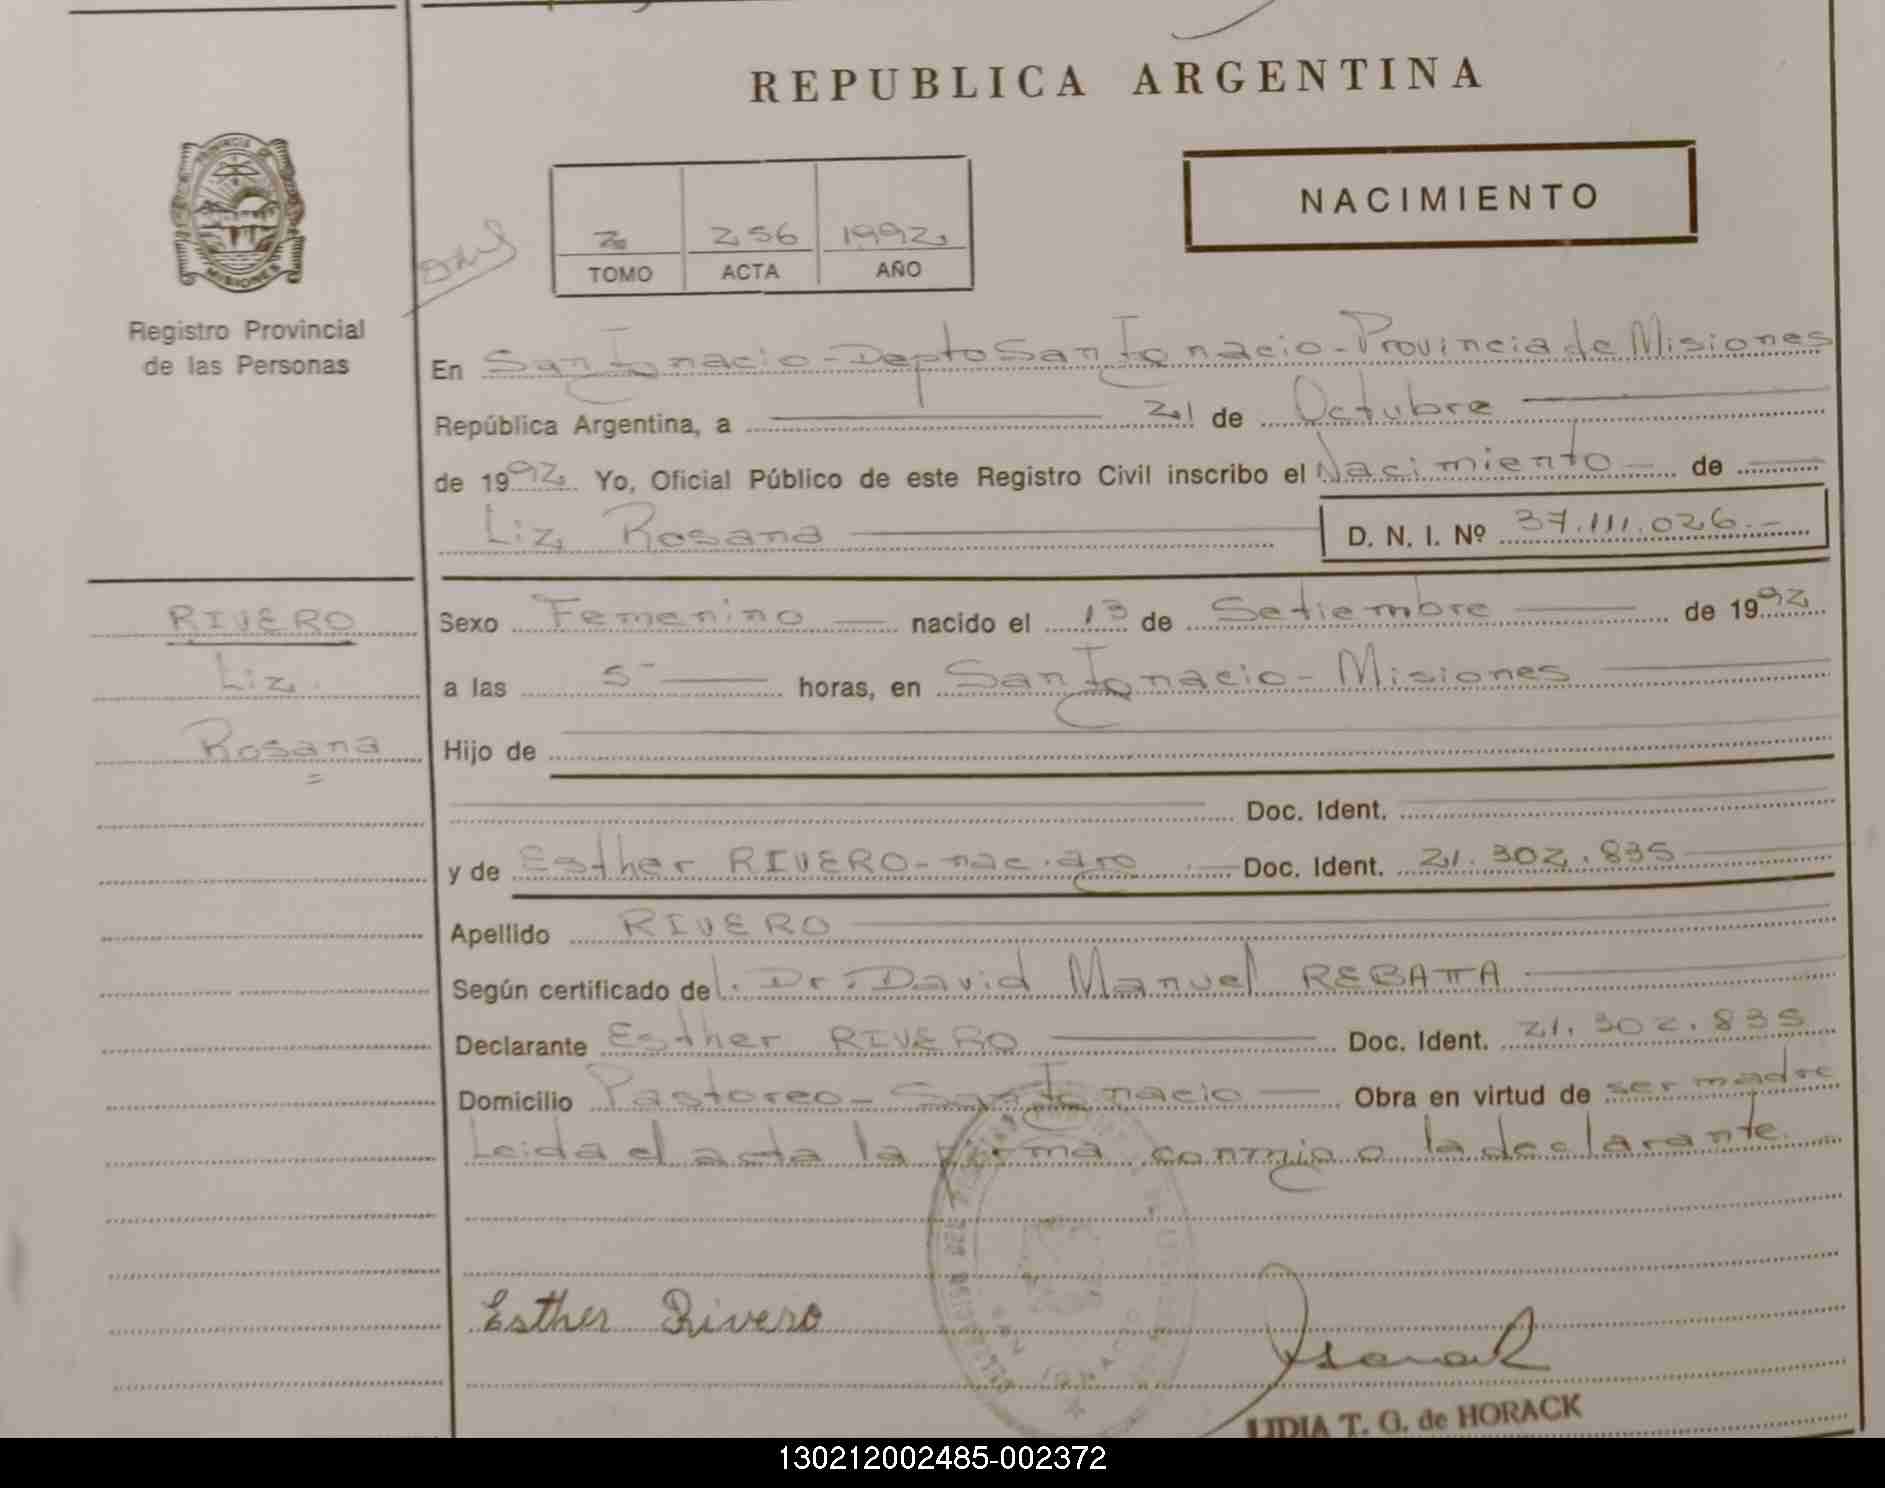 REPUBLICA ARGENTINA
NACIMIENTO
PROVINCIA DE
MISIONES
Registro Provincial
de las Personas
2 256 1992
TOMO ACTA AÑO
En San Ignacio - Depto San Ignacio - Provincia de Misiones
República Argentina, a 21 de Octubre
de 1992 Yo, Oficial Público de este Registro Civil inscribo el Nacimiento de
Liz Rosana D. N. I. Nº 37.111.026.-
RIVERO
Liz
Rosana
Sexo Femenino nacido el 13 de Setiembre de 1992
a las 5 horas, en San Ignacio - Misiones
Hijo de
Doc. Ident.
y de Esther RIVERO - nac. arg Doc. Ident. 21.302.835
Apellido RIVERO
Según certificado del. Dr. David Manuel REBATTA
Declarante Esther RIVERO Doc. Ident. 21.302.835
Domicilio Pastoreo - San Ignacio Obra en virtud de ser madre
Leida el acta la firma conmigo la declarante.
Esther Rivero
LIDIA T. G. de HORACK
130212002485-002372